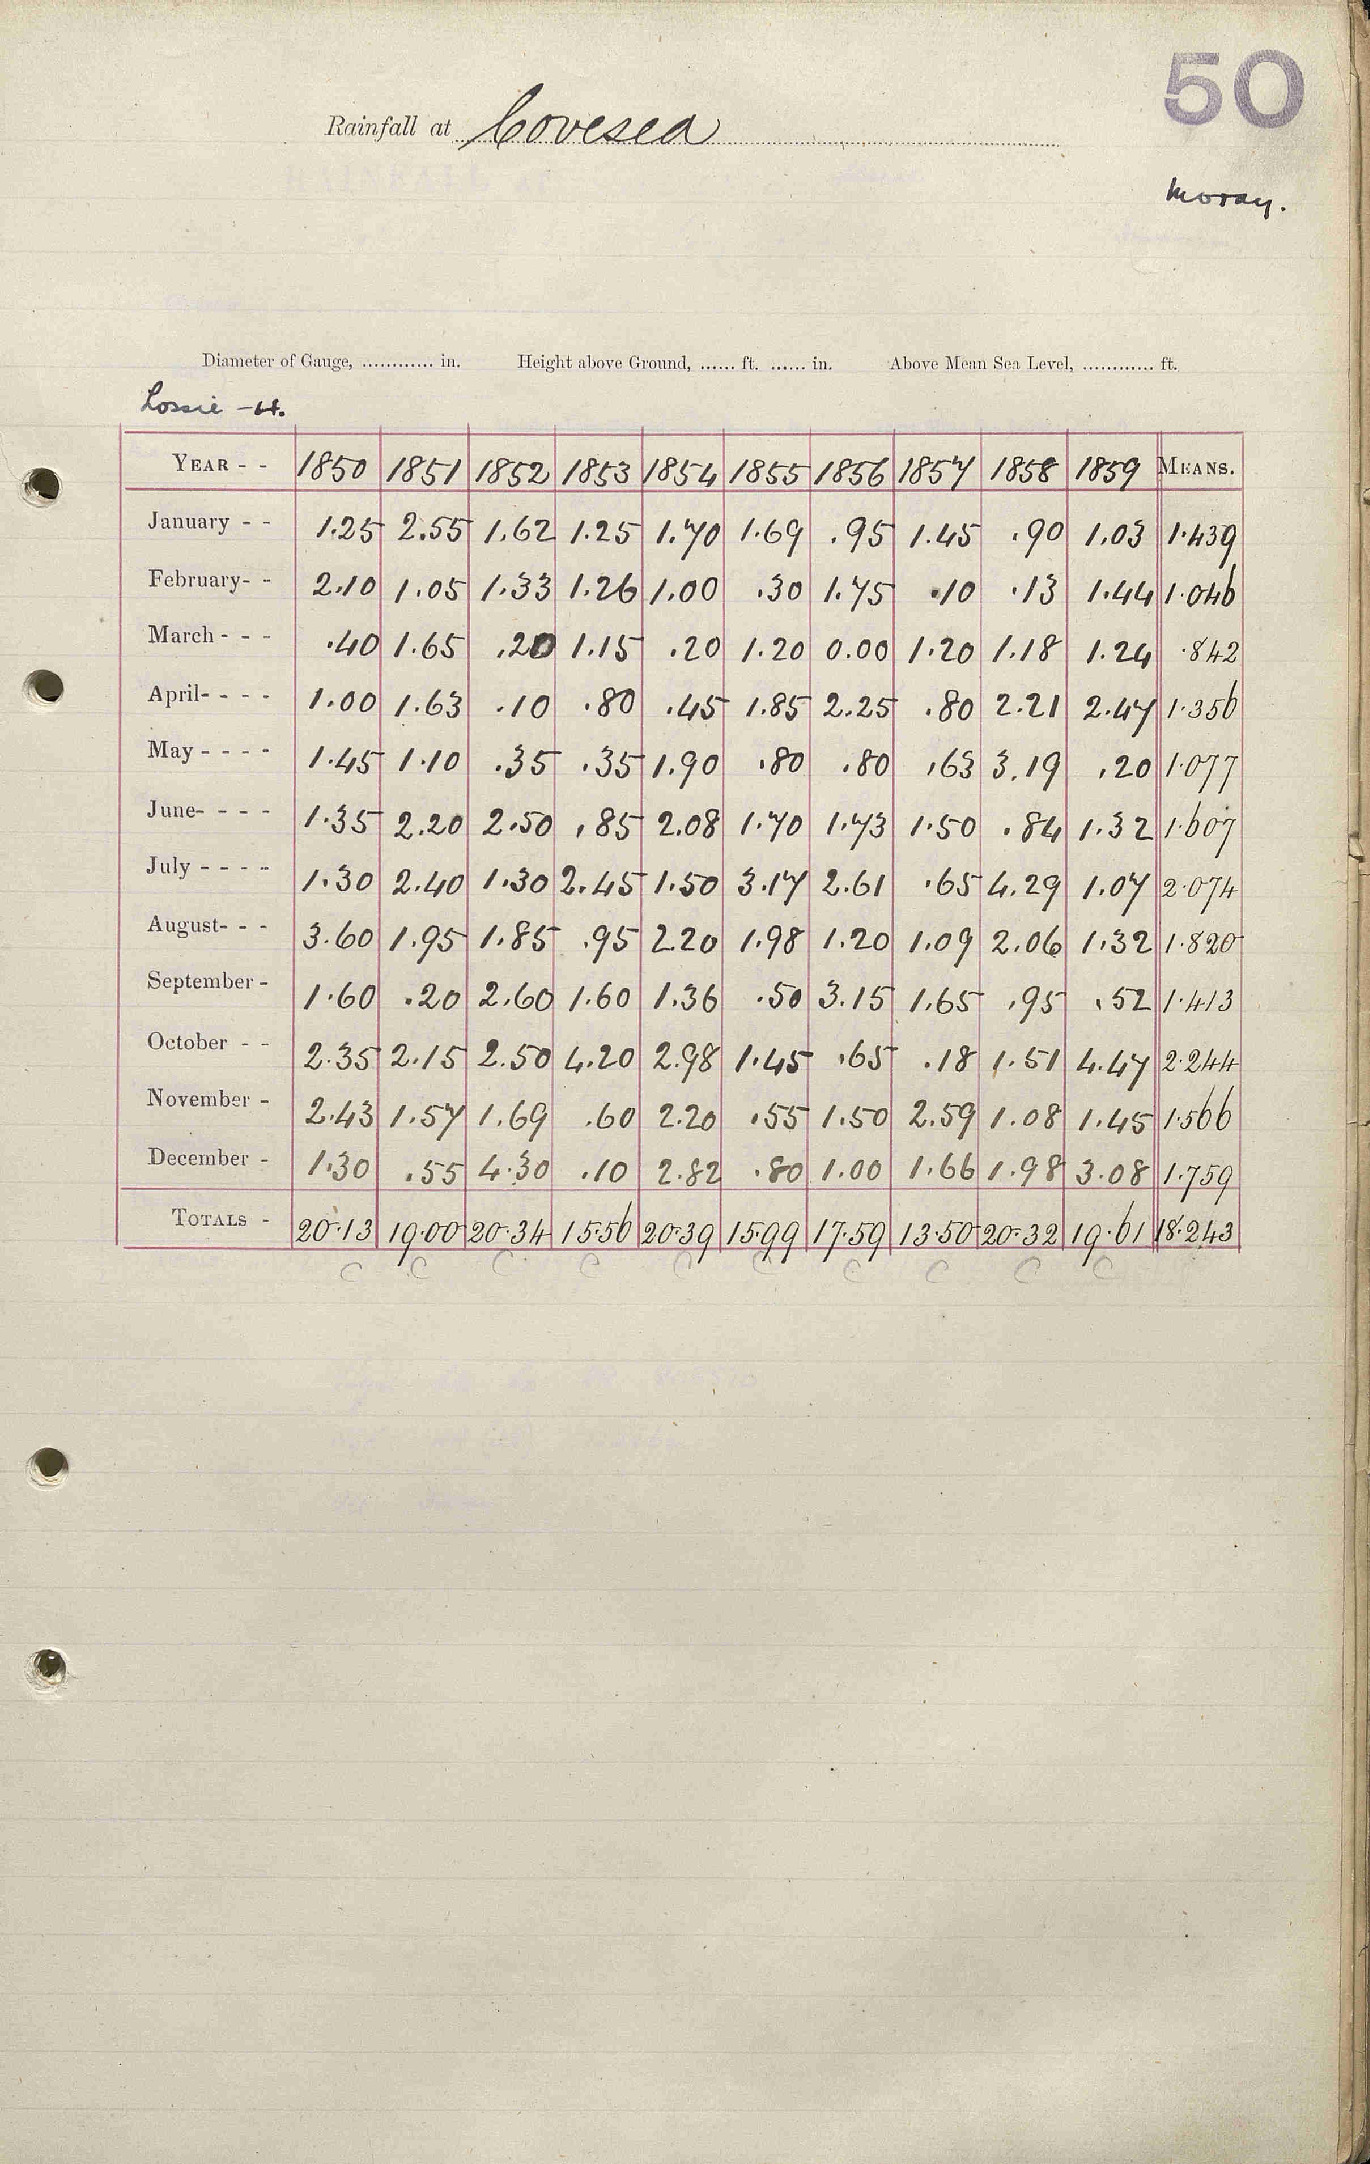 50
Rainfall at Covesea
Moray.
Diameter of Gauge, ............ in. Height above Ground, ...... ft. ...... in. Above Mean Sea Level, ............ ft.
Lossie - H.
YEAR - - 1850 1851 1852 1853 1854 1855 1856 1857 1858 1859 MEANS.
January - - 1.25 2.55 1.62 1.25 1.70 1.69 .95 1.45 .90 1.03 1.439
February- - 2.10 1.05 1.33 1.26 1.00 .30 1.75 .10 .13 1.44 1.046
March - - - .40 1.65 .20 1.15 .20 1.20 0.00 1.20 1.18 1.24 .842
April- - - - 1.00 1.63 .10 .80 .45 1.85 2.25 .80 2.21 2.47 1.356
May - - - - 1.45 1.10 .35 .35 1.90 .80 .80 .63 3.19 .20 1.077
June- - - - 1.35 2.20 2.50 .85 2.08 1.70 1.73 1.50 .84 1.32 1.607
July - - - - 1.30 2.40 1.30 2.45 1.50 3.17 2.61 .65 4.29 1.07 2.074
August- - - 3.60 1.95 1.85 .95 2.20 1.98 1.20 1.09 2.06 1.32 1.820
September - 1.60 .20 2.60 1.60 1.36 .50 3.15 1.65 .95 .52 1.413
October - - 2.35 2.15 2.50 4.20 2.98 1.45 .65 .18 1.51 4.47 2.244
November - 2.43 1.57 1.69 .60 2.20 .55 1.50 2.59 1.08 1.45 1.566
December - 1.30 .55 4.30 .10 2.82 .80 1.00 1.66 1.98 3.08 1.759
TOTALS - 20.13 19.00 20.34 15.56 20.39 15.99 17.59 13.50 20.32 19.61 18.243
C C C C C C C C C C